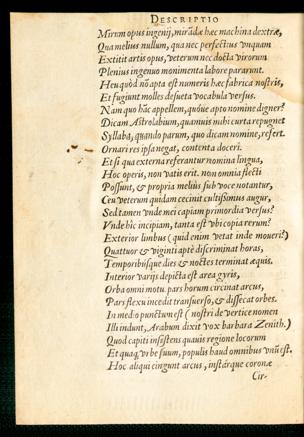 DESCRIPTIO
Mirum opus ingenij, mirãdæ hæc machina dextræ,
Qua melius nullum, qua nec perfectius vnquam
Extitit artis opus, veterum nec docta virorum
Plenius ingenuo monimenta labore pararunt.
Heu quòd nõ apta est numeris hæc fabrica nostris,
Et fugiunt molles desueta vocabula versus.
Nam quo hãc appellem, quóue apto nomine digner?
Dicam Astrolabium, quamuis mihi curta repugnet
Syllaba, quando parum, quo dicam nomine, refert.
Ornari res ipsa negat, contenta doceri.
Et si qua externa referantur nomina lingua,
Hoc operis, non vatis erit. non omnia flecti
Possunt, & propria meliùs sub voce notantur,
Ceu veterum quidam cecinit cultissimus augur,
Sed tamen vnde mei capiam primordia versus?
Vnde hîc incipiam, tanta est vbi copia rerum?
Exterior limbus (quid enim vetat inde moueri?)
Quattuor & viginti aptè discriminat horas,
Temporibúsque dies & noctes terminat æquis.
Interior varijs depicta est area gyris,
Orba omni motu. pars horum circinat arcus,
Pars flexu incedit transuerso, & dissecat orbes.
In medio punctum est (nostri de vertice nomen
Illi indunt, Arabum dixit vox barbara Zenith.)
Quod capiti insistens quauis regione locorum
Et quaq; vrbe suum, populis haud omnibus vnũ est.
Hoc aliqui cingunt arcus, instárque coronæ
Cir-